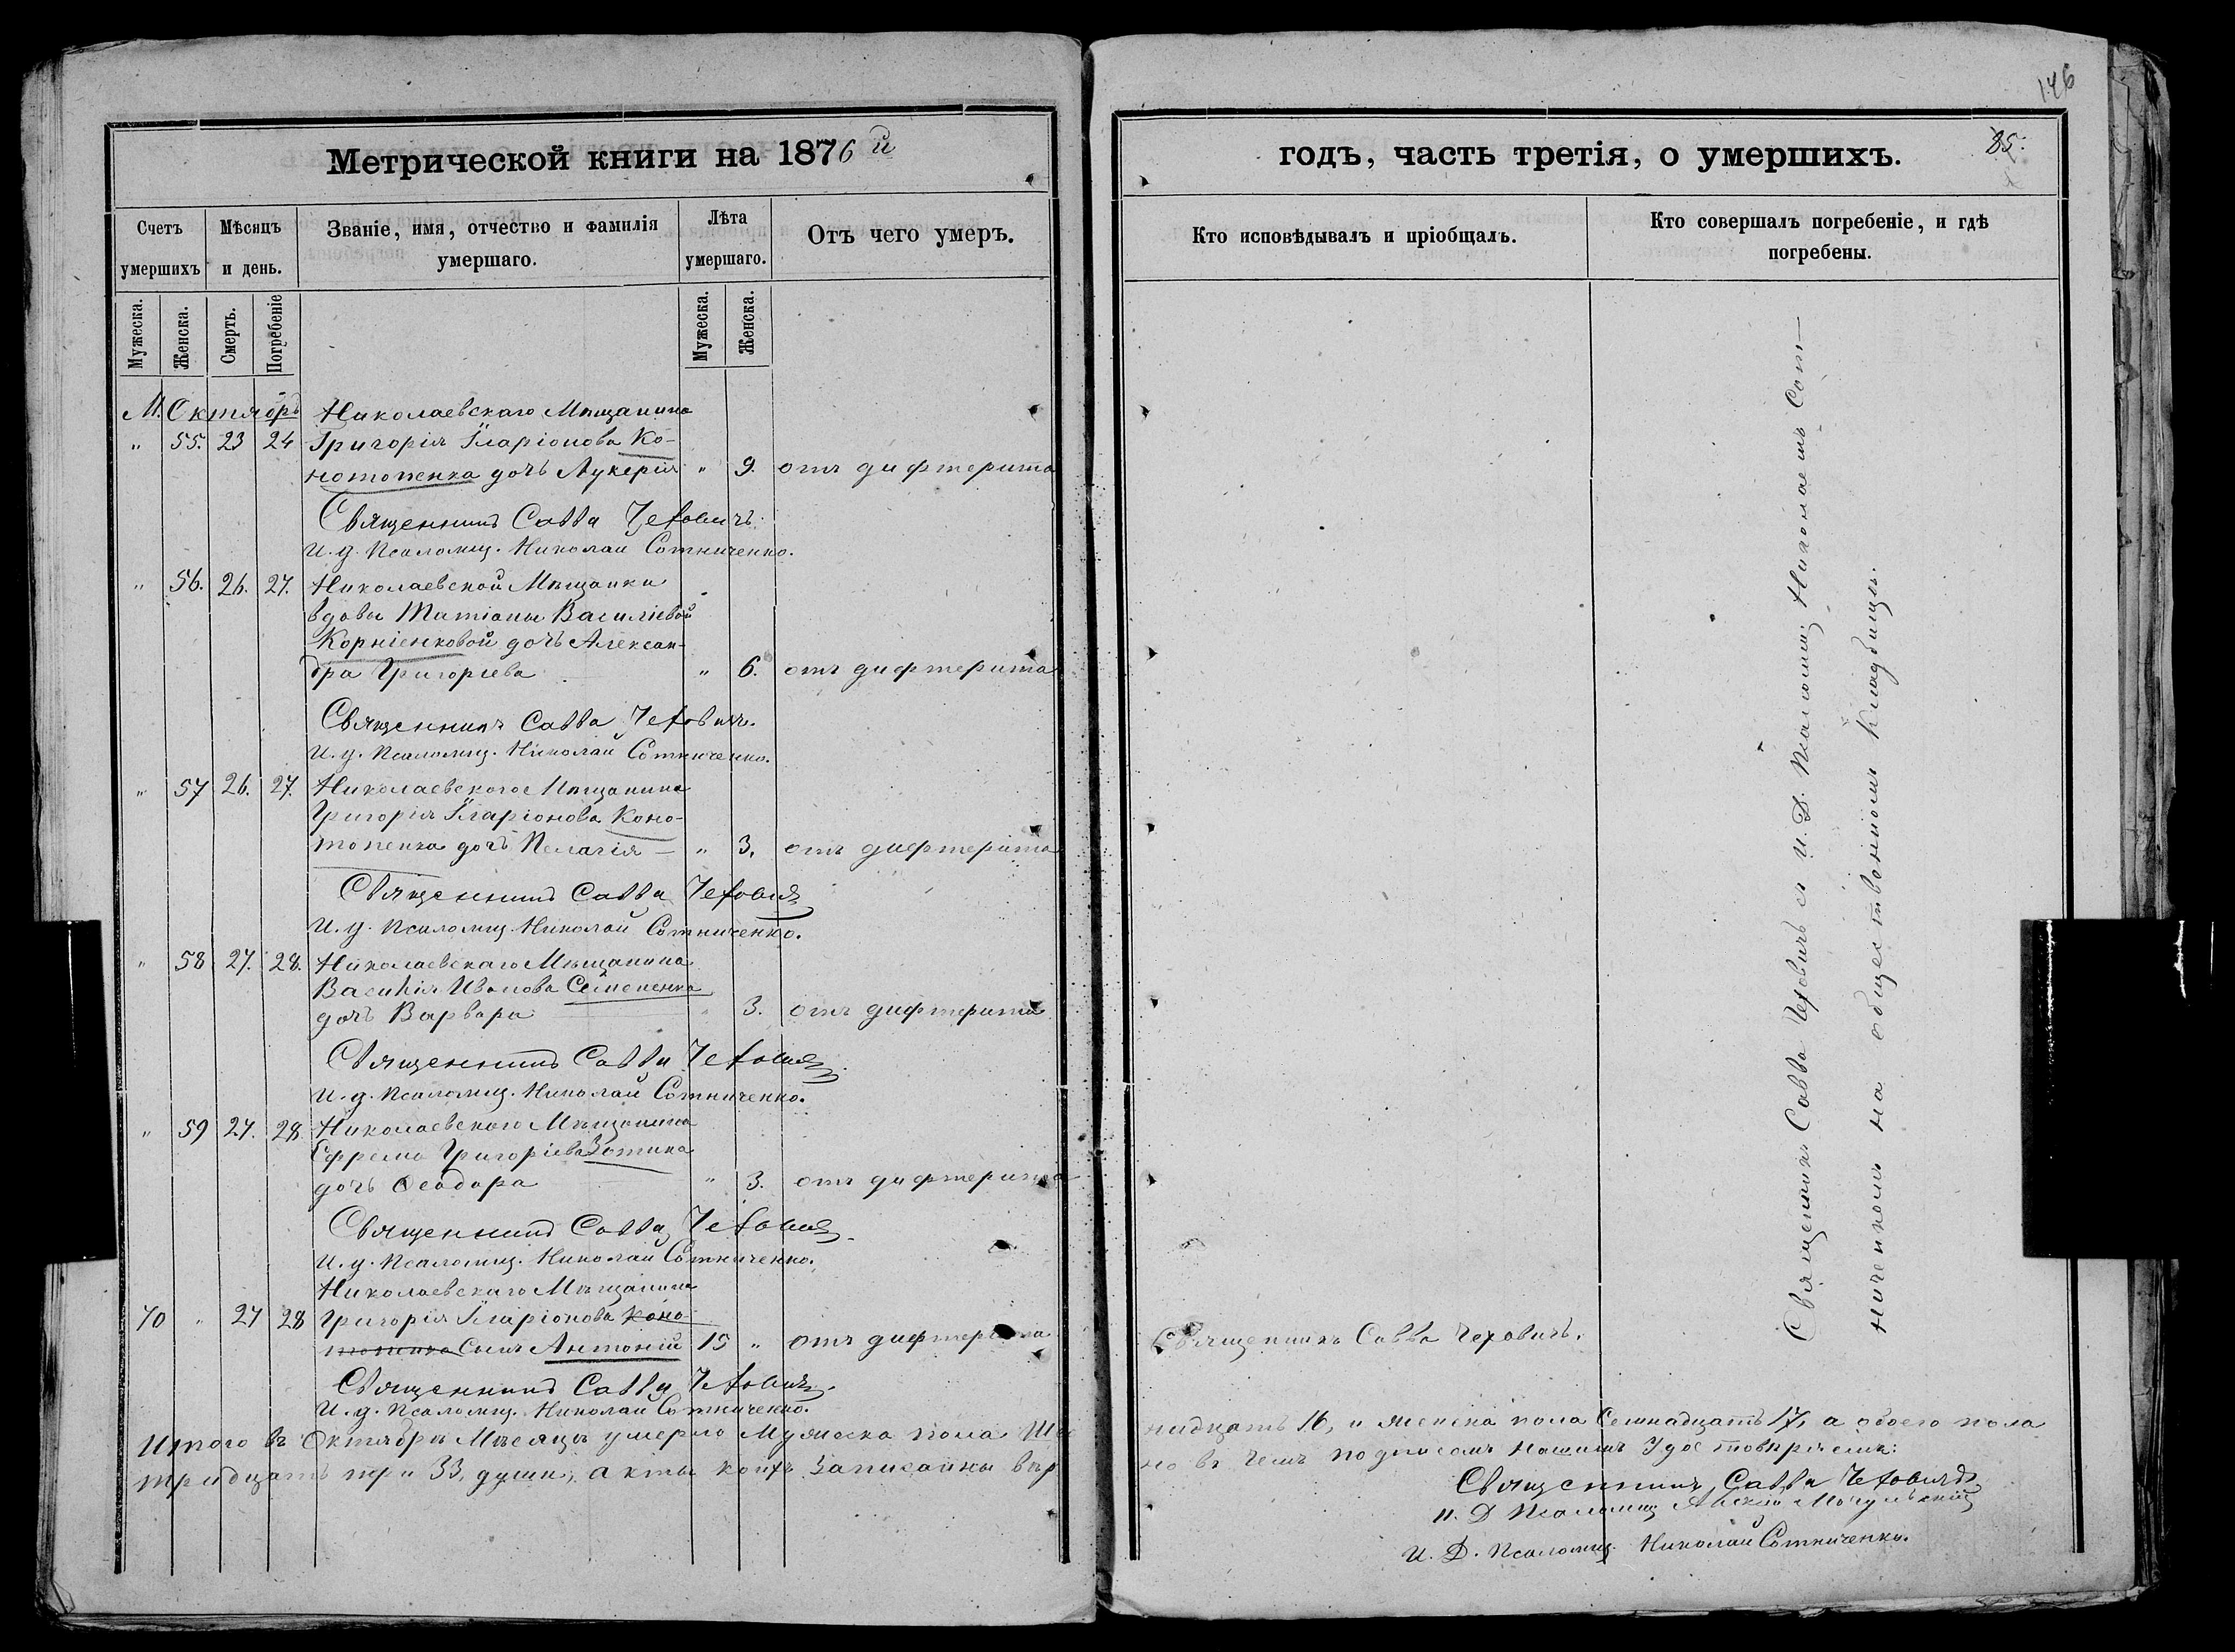 Метрической книги на 1876й
Счетъ умершихъ
Мѣсяцъ и день.
Званіе, имя, отчество и фамилія умершаго.
Лѣта умершаго.
Отъ чего умеръ.
Мужеска.
Женска.
Смерть.
Погребеніе
Мужеска.
Женска.
М. Октябрь Николаевскаго Мѣщанина
" 55. 23 24 Григорія Иларіонова Ко-
нотопенка дочь Лукерія " 9. отъ дифтерита
Священникъ Савва Чеховичъ.
И. д. Псаломщ. Николай Сотниченко.
" 56. 26. 27. Николаевской Мѣщанки
вдовы Татіаны Василіевой
Корніенковой дочь Алексан-
дра Григоріева " 6. отъ дифтерита
Священникъ Савва Чеховичъ.
И. д. Псаломщ. Николай Сотниченко.
" 57 26. 27. Николаевскаго Мѣщанина
Григорія Иларіонова Коно-
топенка дочь Пелагія — " 3. отъ дифтерита
Священникъ Савва Чеховичъ
И. д. Псаломщ. Николай Сотниченко.
" 58 27. 28. Николаевскаго Мѣщанина
Василія Иванова Семененка
дочь Варвара " 3. отъ дифтерита
Священникъ Савва Чеховичъ
И. д. Псаломщ. Николай Сотниченко.
" 59 27. 28 Николаевскаго Мѣщанина
Ефрема Григоріева Зотина
дочь Ѳеодора " 3. отъ дифтерита
Священникъ Савва Чеховичъ
И. д. Псаломщ. Николай Сотниченко.
Николаевскаго Мѣщанина
70 " 27 28 Григорія Иларіонова Коно-
топенка Сынъ Антоній 15 " отъ дифтерита
Священникъ Савва Чеховичъ.
И. д. Псаломщ. Николай Сотниченко.
Итого въ Октябрѣ Мѣсяцѣ умерло Мужеска пола Ше
тридцать три 33, души, акты коихъ записаны вѣр
146
85.
годъ, часть третія, о умершихъ.
Кто исповѣдывалъ и пріобщалъ.
Кто совершалъ погребеніе, и гдѣ погребены.
Священникъ Савва Чеховичъ съ И. Д. Псаломщ. Николаемъ Сот—
ниченкомъ на общественномъ кладбищѣ.
Священникъ Савва Чеховичъ.
надцать 16, и женска пола Семнадцать 17, а обоего пола
но въ чемъ подписомъ нашимъ удостовѣряемъ:
Священникъ Савва Чеховичъ
И. Д. Псаломщ.
И. Д. Псаломщ. Николай Сотниченко.